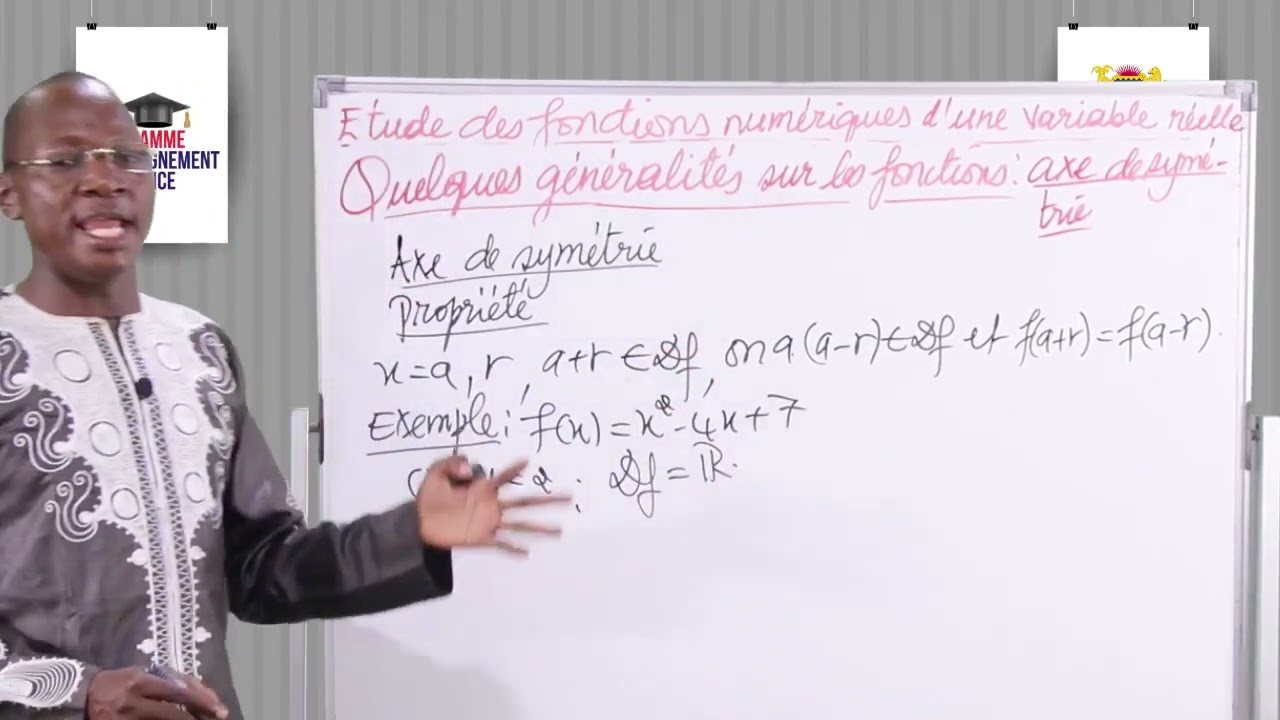 AMME
GNEMENT
CE
Etude des fonctions numériques d'une variable réelle
Quelques généralités sur les fonctions : axe de symé-
trie
Axe de symétrie
Propriété
x=a, r, a+r ∈ Df, on a (a-r) ∈ Df et f(a+r) = f(a-r).
Exemple : f(x) = x² - 4x + 7
: Df = ℝ.